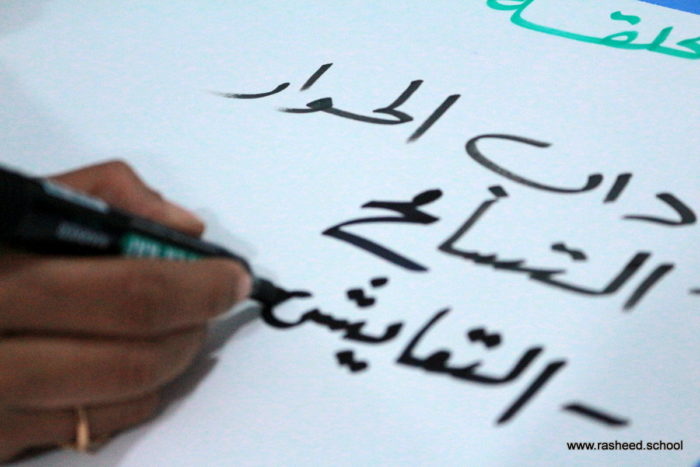 حلقة
داب الحوار
- التسامح
- التعايش
www.rasheed.school